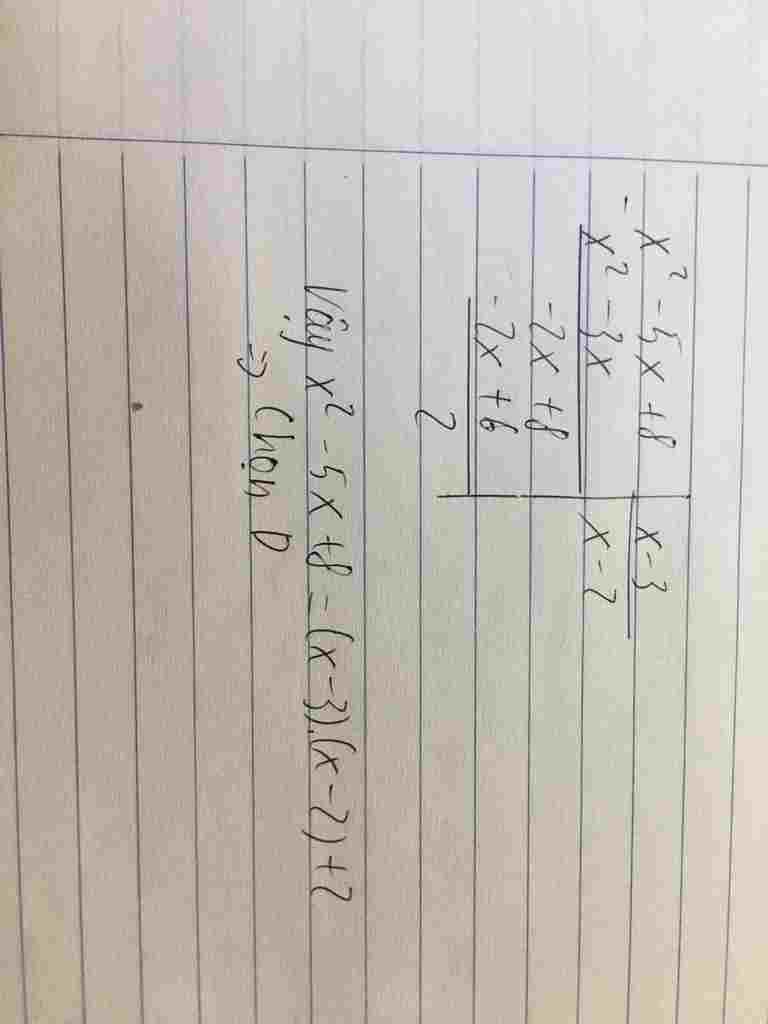 - x² - 5x + 8 | x - 3
x² - 3x | x - 2
-2x + 8
-2x + 6
2
Vậy x² - 5x + 8 = (x - 3).(x - 2) + 2
=> Chọn D